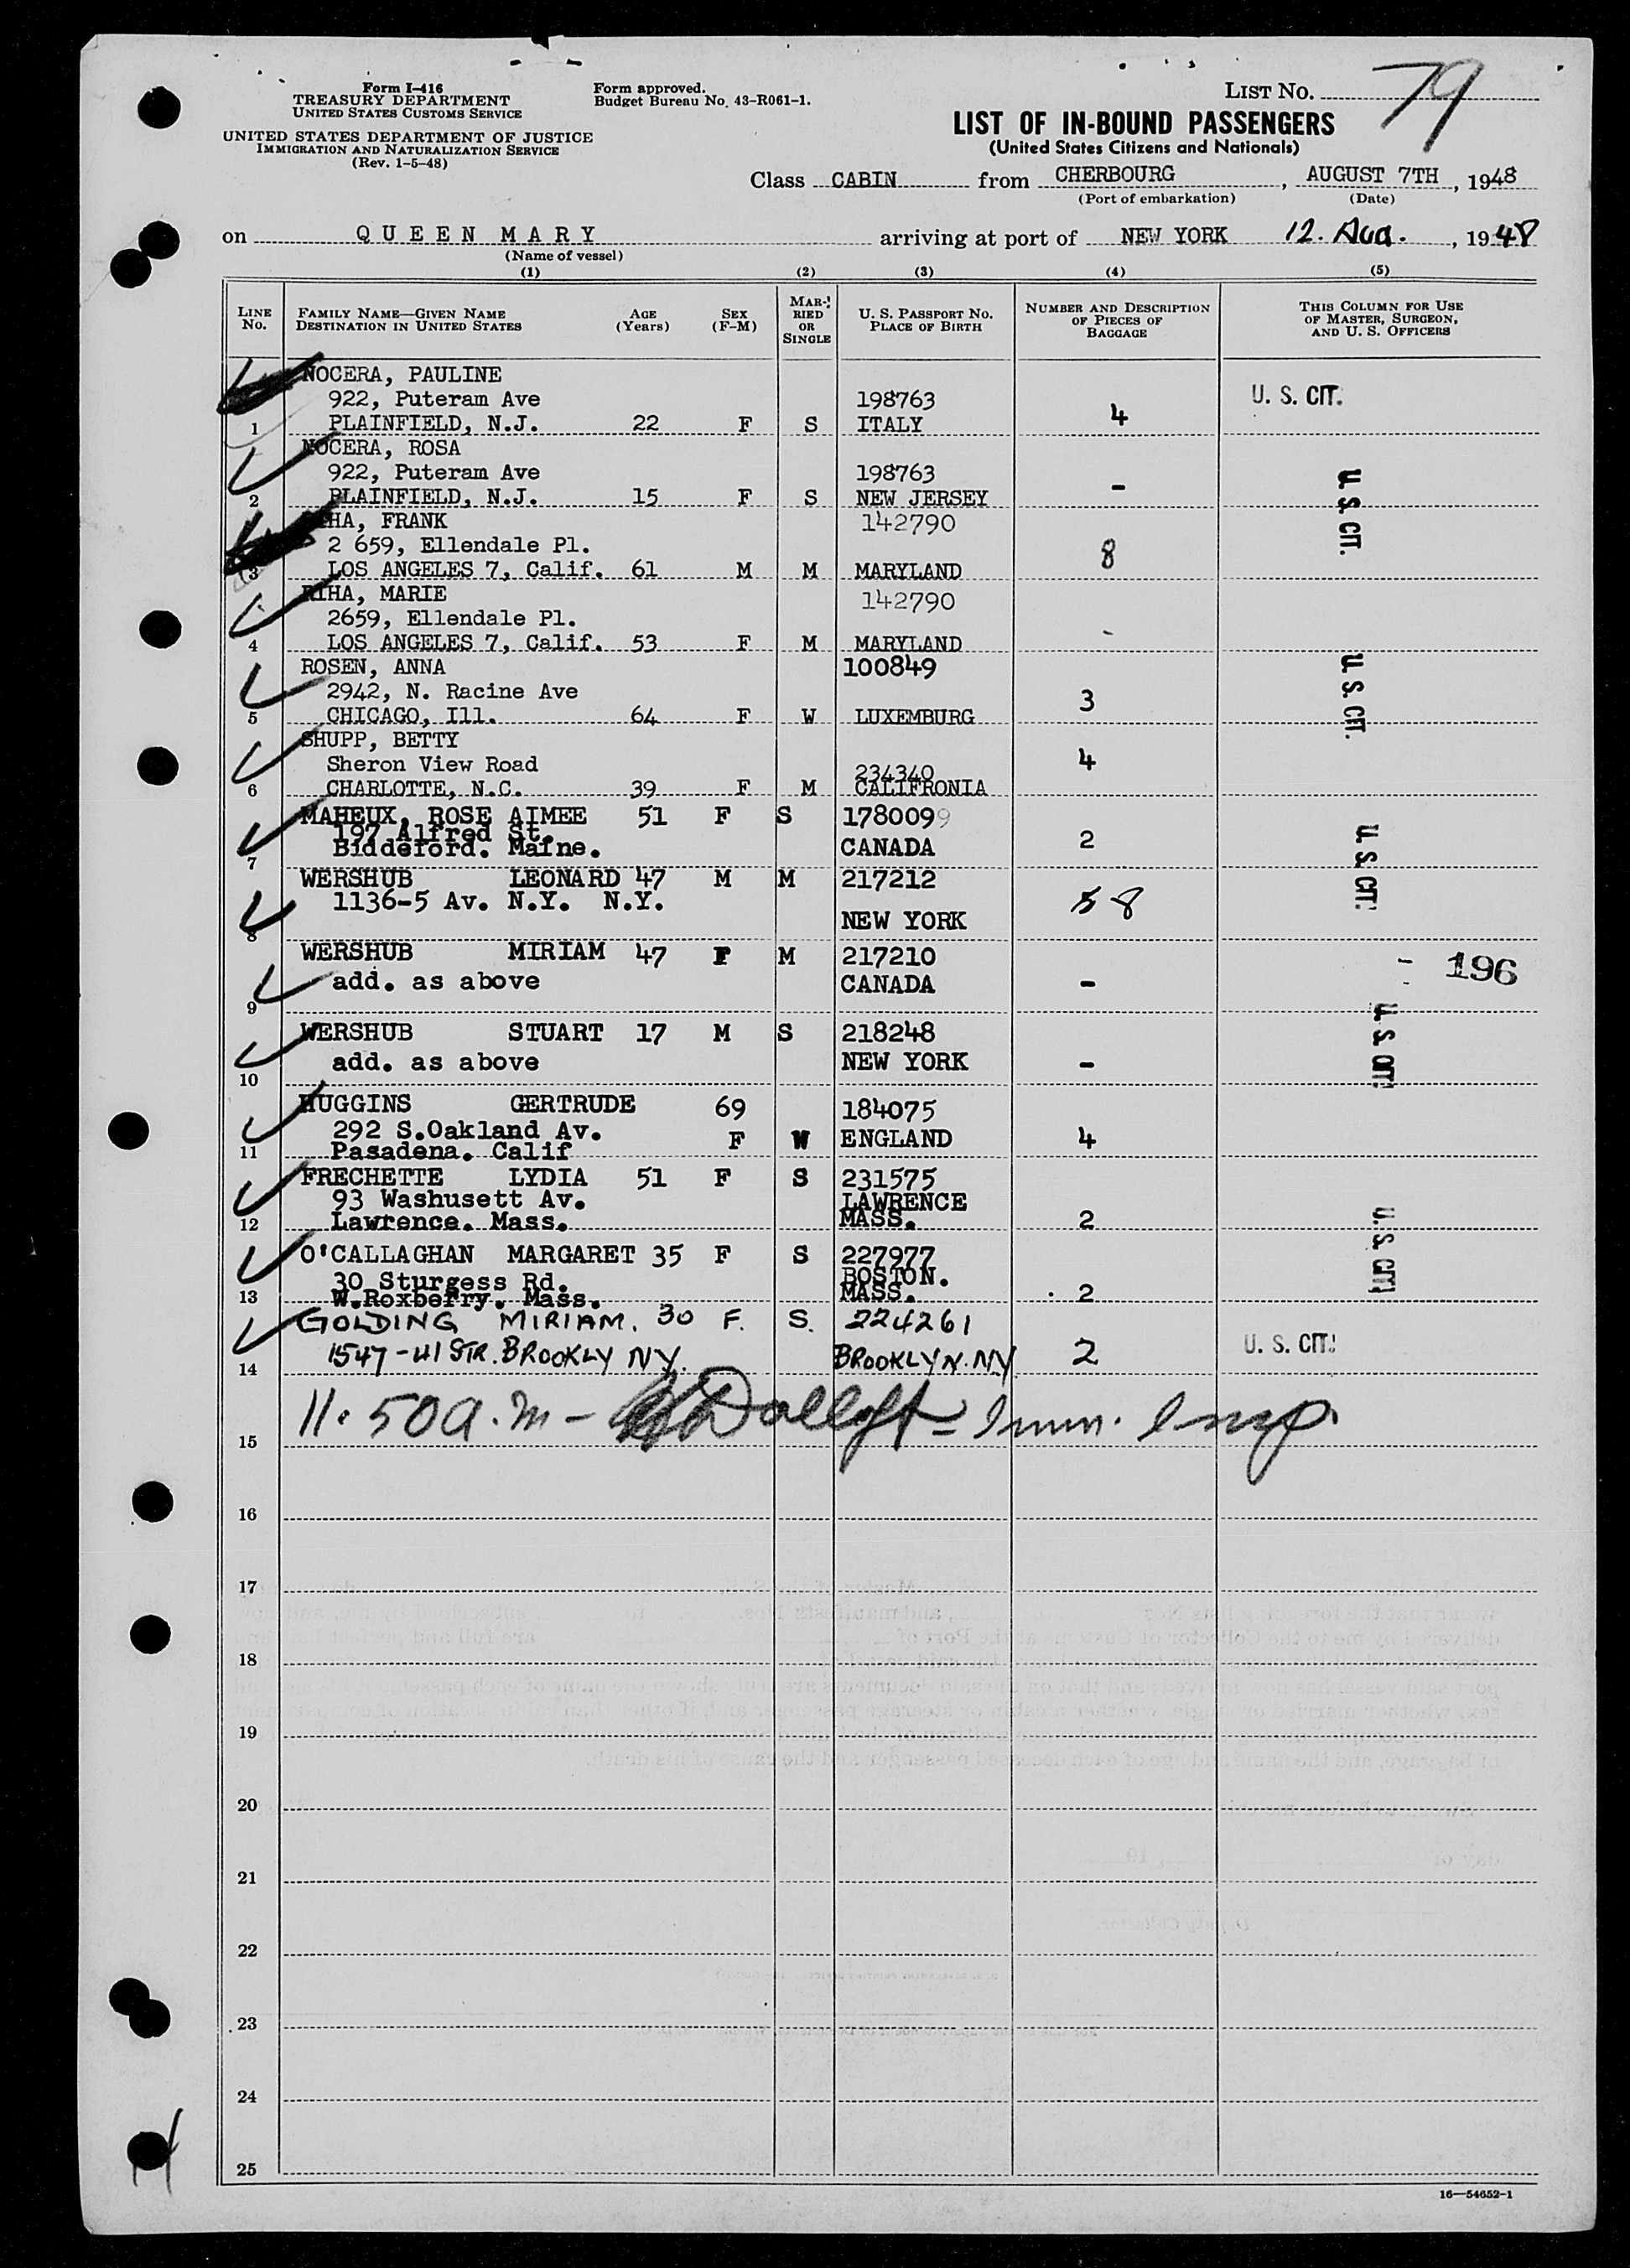 Form I-416
TREASURY DEPARTMENT
UNITED STATES CUSTOMS SERVICE
UNITED STATES DEPARTMENT OF JUSTICE
IMMIGRATION AND NATURALIZATION SERVICE
(Rev. 1-5-48)
Form approved.
Budget Bureau No. 43-R061-1.
LIST NO. 79
LIST OF IN-BOUND PASSENGERS
(United States Citizens and Nationals)
Class CABIN from CHERBOURG, AUGUST 7TH, 1948
(Port of embarkation) (Date)
on QUEEN MARY arriving at port of NEW YORK 12. Aug., 1948
(Name of vessel)
(1) (2) (3) (4) (5)
LINE No.
FAMILY NAME—GIVEN NAME
DESTINATION IN UNITED STATES
AGE (Years)
SEX (F-M)
MARRIED OR SINGLE
U. S. PASSPORT NO.
PLACE OF BIRTH
NUMBER AND DESCRIPTION OF PIECES OF BAGGAGE
THIS COLUMN FOR USE OF MASTER, SURGEON, AND U. S. OFFICERS
NOCERA, PAULINE
922, Puteram Ave 198763 U. S. CIT.
1 PLAINFIELD, N.J. 22 F S ITALY 4
NOCERA, ROSA
922, Puteram Ave 198763
2 PLAINFIELD, N.J. 15 F S NEW JERSEY - U. S. CIT.
HA, FRANK 142790
2 659, Ellendale Pl. 8
3 LOS ANGELES 7, Calif. 61 M M MARYLAND
RIHA, MARIE 142790
2659, Ellendale Pl.
4 LOS ANGELES 7, Calif. 53 F M MARYLAND -
ROSEN, ANNA 100849
2942, N. Racine Ave 3 U. S. CIT.
5 CHICAGO, Ill. 64 F W LUXEMBURG
SHUPP, BETTY
Sheron View Road 234340 4
6 CHARLOTTE, N.C. 39 F M CALIFRONIA
MAHEUX, ROSE AIMEE 51 F S 1780099
197 Alfred St.
7 Biddeford. Maine. CANADA 2 U. S. CIT.
WERSHUB LEONARD 47 M M 217212
1136-5 Av. N.Y. N.Y. 5 8
8 NEW YORK
WERSHUB MIRIAM 47 F M 217210 - 196
9 add. as above CANADA -
WERSHUB STUART 17 M S 218248 U. S. CIT.
10 add. as above NEW YORK -
HUGGINS GERTRUDE 69 184075
292 S.Oakland Av. F W ENGLAND 4
11 Pasadena. Calif
FRECHETTE LYDIA 51 F S 231575
93 Washusett Av. LAWRENCE
12 Lawrence. Mass. MASS. 2 U. S. CIT.
O'CALLAGHAN MARGARET 35 F S 227977
30 Sturgess Rd. BOSTON.
13 W.Roxberry. Mass. MASS. 2
GOLDING MIRIAM. 30 F. S. 224261 U. S. CIT.
14 1547-41 STR. BROOKLY NY. BROOKLYN. NY 2
11.50 a.m - Imm. Insp.
15
16
17
18
19
20
21
22
23
24
25
16—54652-1